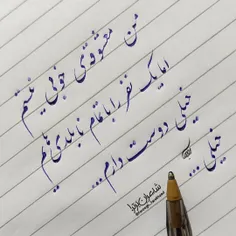 من معشوقه‌ی خوبی نیستم
اما یک نفر را با تمام نابلدی‌هایم
خیلی دوست دارم...
خیلی...